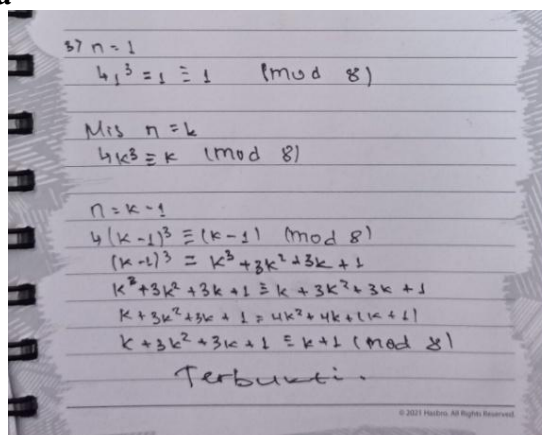 a
3) n = 1
↳ 1³ = 1 ≡ 1 (mod 8)
Mis n = k
↳ k³ ≡ k (mod 8)
n = k - 1
↳ (k - 1)³ ≡ (k - 1) (mod 8)
(k - 1)³ = k³ + 3k² + 3k + 1
k³ + 3k² + 3k + 1 ≡ k + 3k² + 3k + 1
k + 3k² + 3k + 1 = 4k² + 4k + (k + 1)
k + 3k² + 3k + 1 ≡ k + 1 (mod 8)
Terbukti.
© 2021 Hasbro. All Rights Reserved.